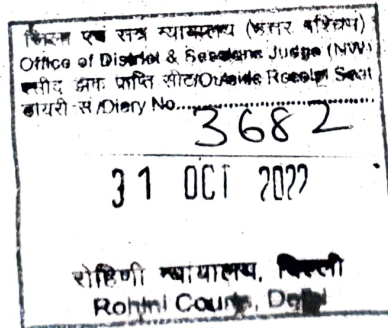 जिला एवं सत्र न्यायालय (उत्तर पश्चिम)
Office of District & Sessions Judge (NW)
रसीद प्राप्ति सीट/Outside Receipt Seat
डायरी सं./Diary No. 3682
31 OCT 2022
रोहिणी न्यायालय, दिल्ली
Rohini Courts, Delhi